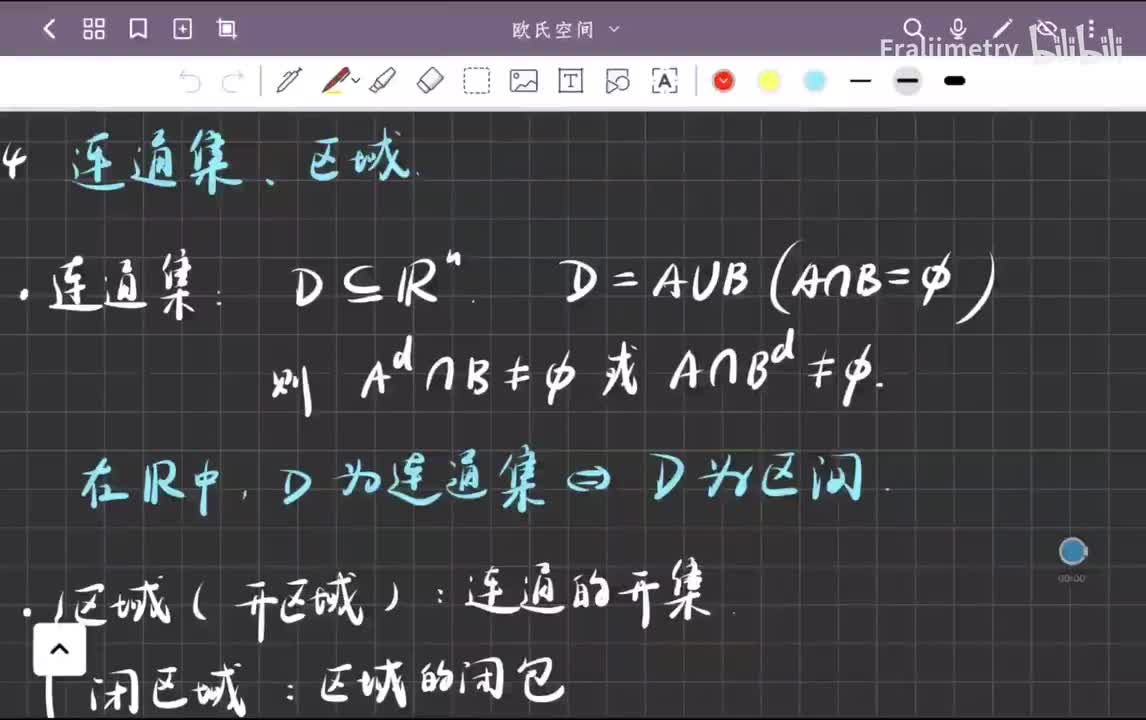 欧氏空间
Fraljimetry bilibili
4 连通集、区域.
· 连通集: D ⊆ ℝⁿ. D = A∪B (A∩B=∅)
则 Aᵈ∩B≠∅ 或 A∩Bᵈ≠∅.
在ℝ中, D为连通集 ⇔ D为区间.
· 区域(开区域): 连通的开集.
00:00
闭区域: 区域的闭包